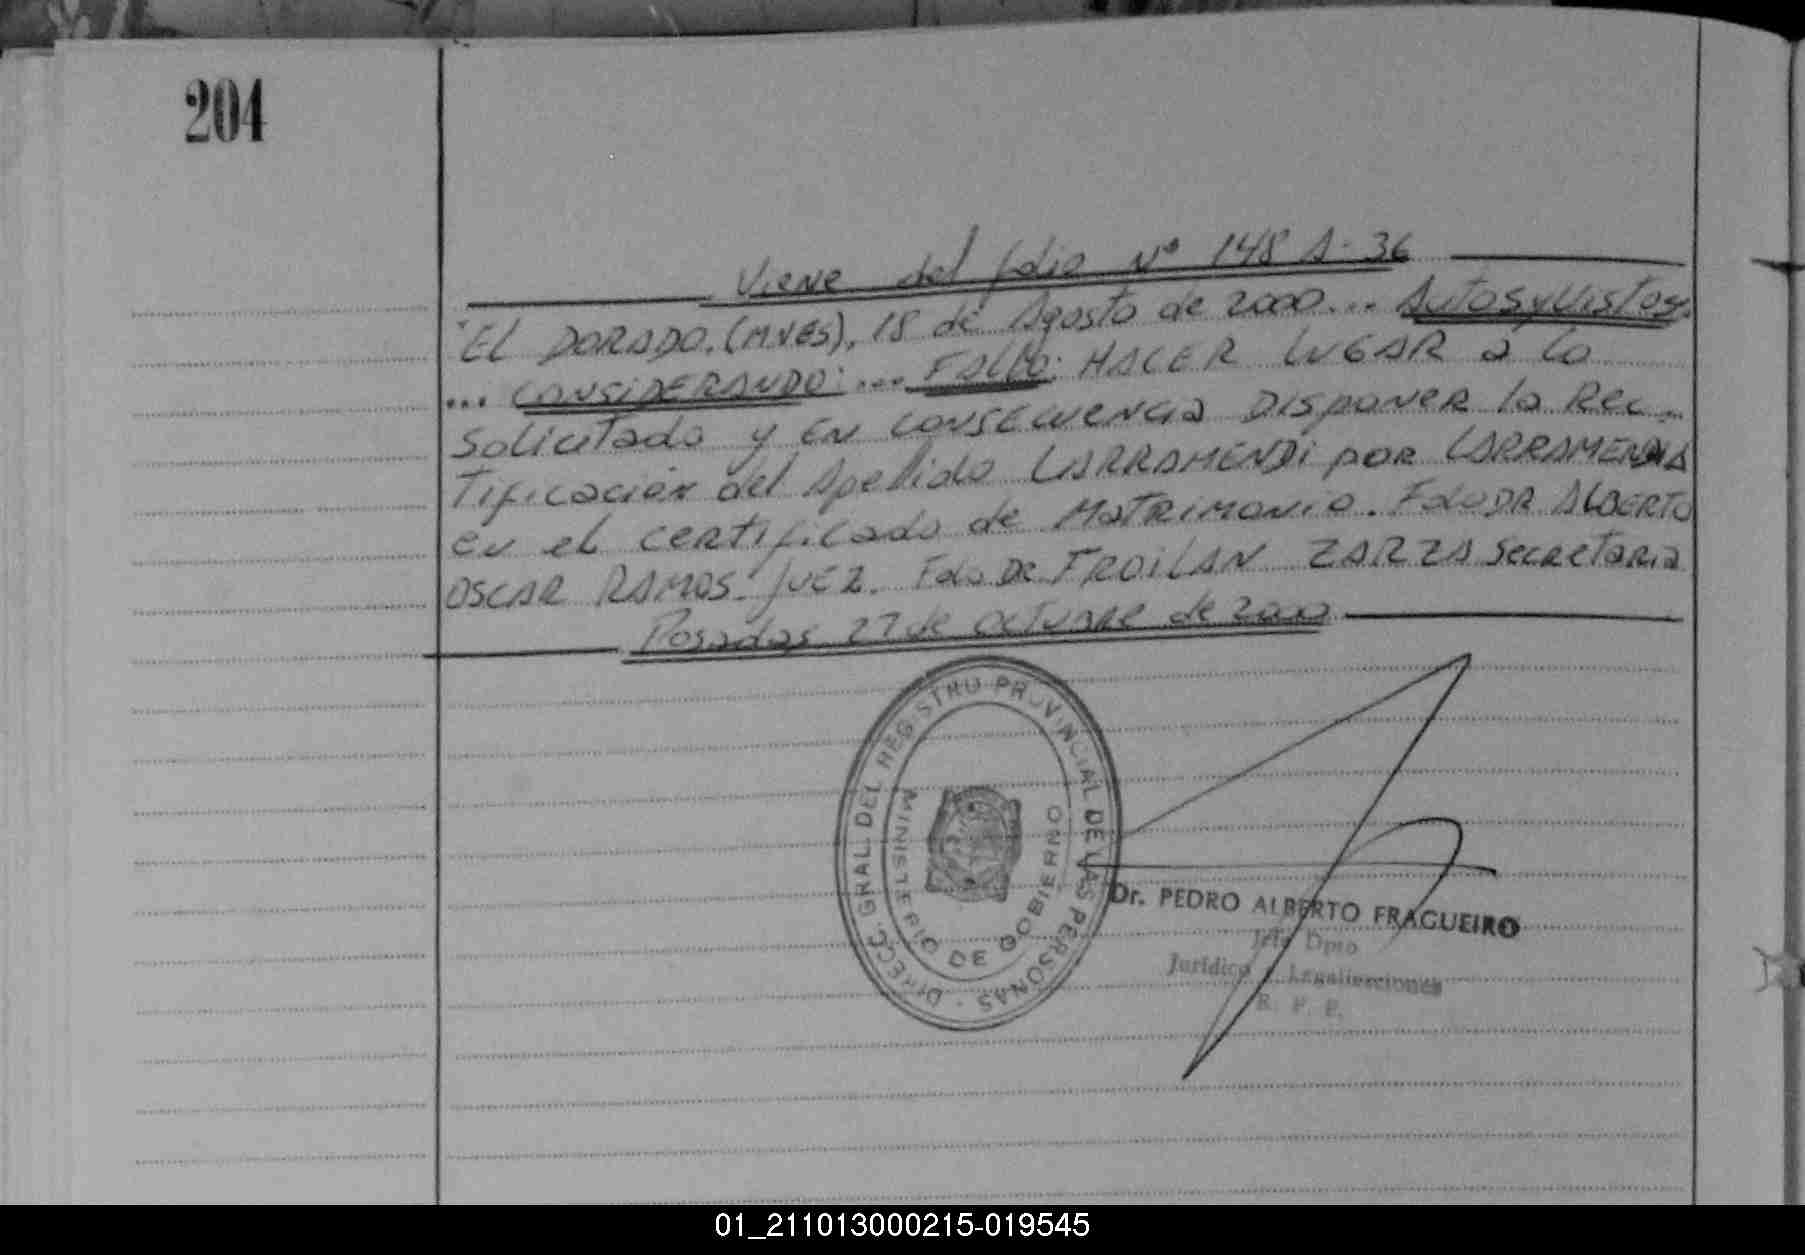 204
Viene del folio Nº 148 A-36
"El DORADO, (MNES), 18 de Agosto de 2000... AUTOS y VISTOS:
... CONSIDERANDO: ... FALLO: HACER LUGAR a lo
solicitado y en consecuencia Disponer la Rec-
tificación del Apellido LARRAMENDI por LARRAMENDIA
en el certificado de Matrimonio. Fdo DR ALBERTO
OSCAR RAMOS. JUEZ. Fdo DR FROILAN ZARZA Secretaria
Posadas 27 de octubre de 2000
DIRECC. GRAL. DEL REGISTRO PROVINCIAL DE LAS PERSONAS -
MINISTERIO DE GOBIERNO
Dr. PEDRO ALBERTO FRAGUEIRO
Jefe Dpto
Jurídico y Legalizaciones
R. P. P.
01_211013000215-019545